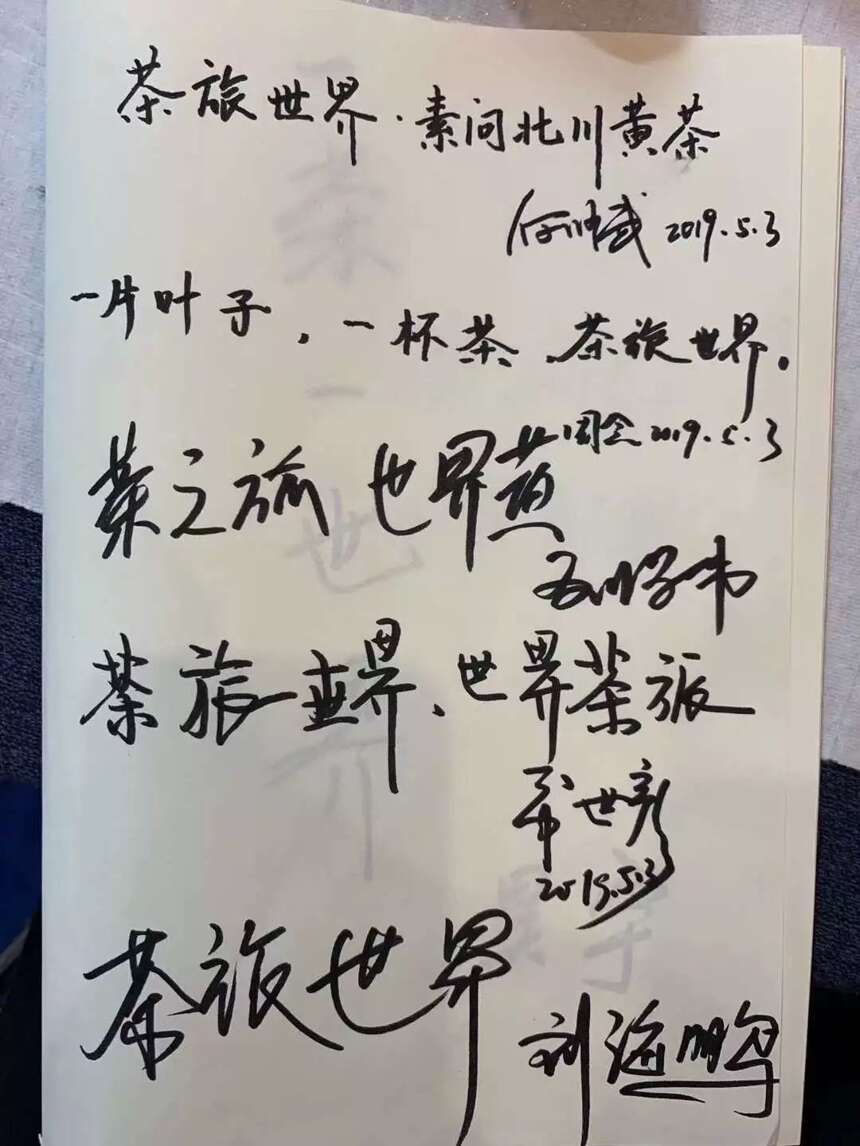 茶旅世界·素问北川黄茶
2019.5.3
一片叶子,一杯茶,茶旅世界。
2019.5.3
茶之旅 世界
茶旅世界、世界茶旅
世彦
2019.5.3
茶旅世界
刘 鹏